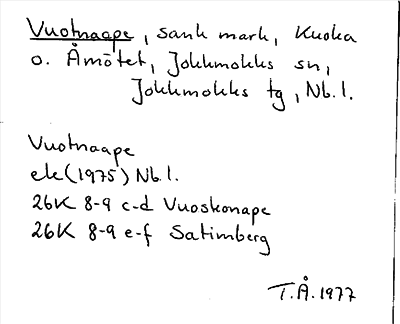 Vuotnaape, sank mark, Kuoka
o. Åmötet, Jokkmokks sn,
Jokkmokks tg, Nb.l.
Vuotnaape
ek (1975) Nb.l.
26K 8-9 c-d Vuoskonape
26K 8-9 e-f Satimberg
T.Å. 1977